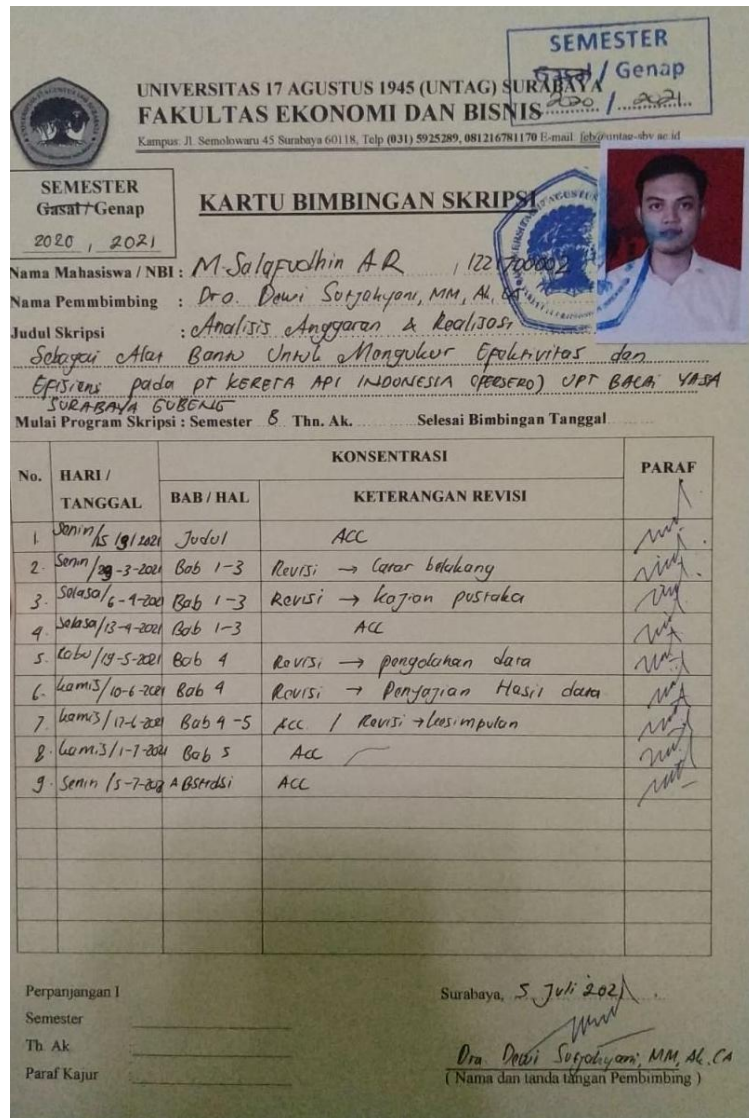 SEMESTER
Gasal / Genap
2020 / 2021
UNIVERSITAS 17 AGUSTUS 1945 (UNTAG) SURABAYA
FAKULTAS EKONOMI DAN BISNIS
Kampus: Jl. Semolowaru 45 Surabaya 60118, Telp (031) 5925289, 081216781170 E-mail. feb@untag-sby.ac.id
SEMESTER
Gasal / Genap
2020 , 2021
KARTU BIMBINGAN SKRIPSI
Nama Mahasiswa / NBI : M. Salafudhin AR , 1221700002
Nama Pemmbimbing : Dra. Dewi Sutjahyani, MM, Ak, CA
Judul Skripsi : Analisis Anggaran & Realisasi
Sebagai Alat Bantu Untuk Mengukur Efektivitas dan
Efisiens pada PT KERETA API INDONESIA (PERSERO) UPT BALAI YASA
SURABAYA GUBENG
Mulai Program Skripsi : Semester 8 Thn. Ak. Selesai Bimbingan Tanggal
No. HARI / TANGGAL KONSENTRASI PARAF
BAB / HAL KETERANGAN REVISI
1. Senin/15 /3/2021 Judul ACC
2. Senin/29-3-2021 Bab 1-3 Revisi → Latar belakang
3. Selasa/6-4-2021 Bab 1-3 Revisi → kajian pustaka
4. Selasa/13-4-2021 Bab 1-3 ACC
5. Rabu/19-5-2021 Bab 4 Revisi → pengolahan data
6. kamis/10-6-2021 Bab 4 Revisi → Penyajian Hasil data
7. kamis/17-6-2021 Bab 4-5 Acc / Revisi → kesimpulan
8. kamis/1-7-2021 Bab 5 Acc
9. Senin /5-7-2021 ABstraksi ACC
Perpanjangan I
Semester :
Th. Ak :
Paraf Kajur :
Surabaya, 5 Juli 2021
Dra. Dewi Sutjahyani, MM, Ak, CA
( Nama dan tanda tangan Pembimbing )